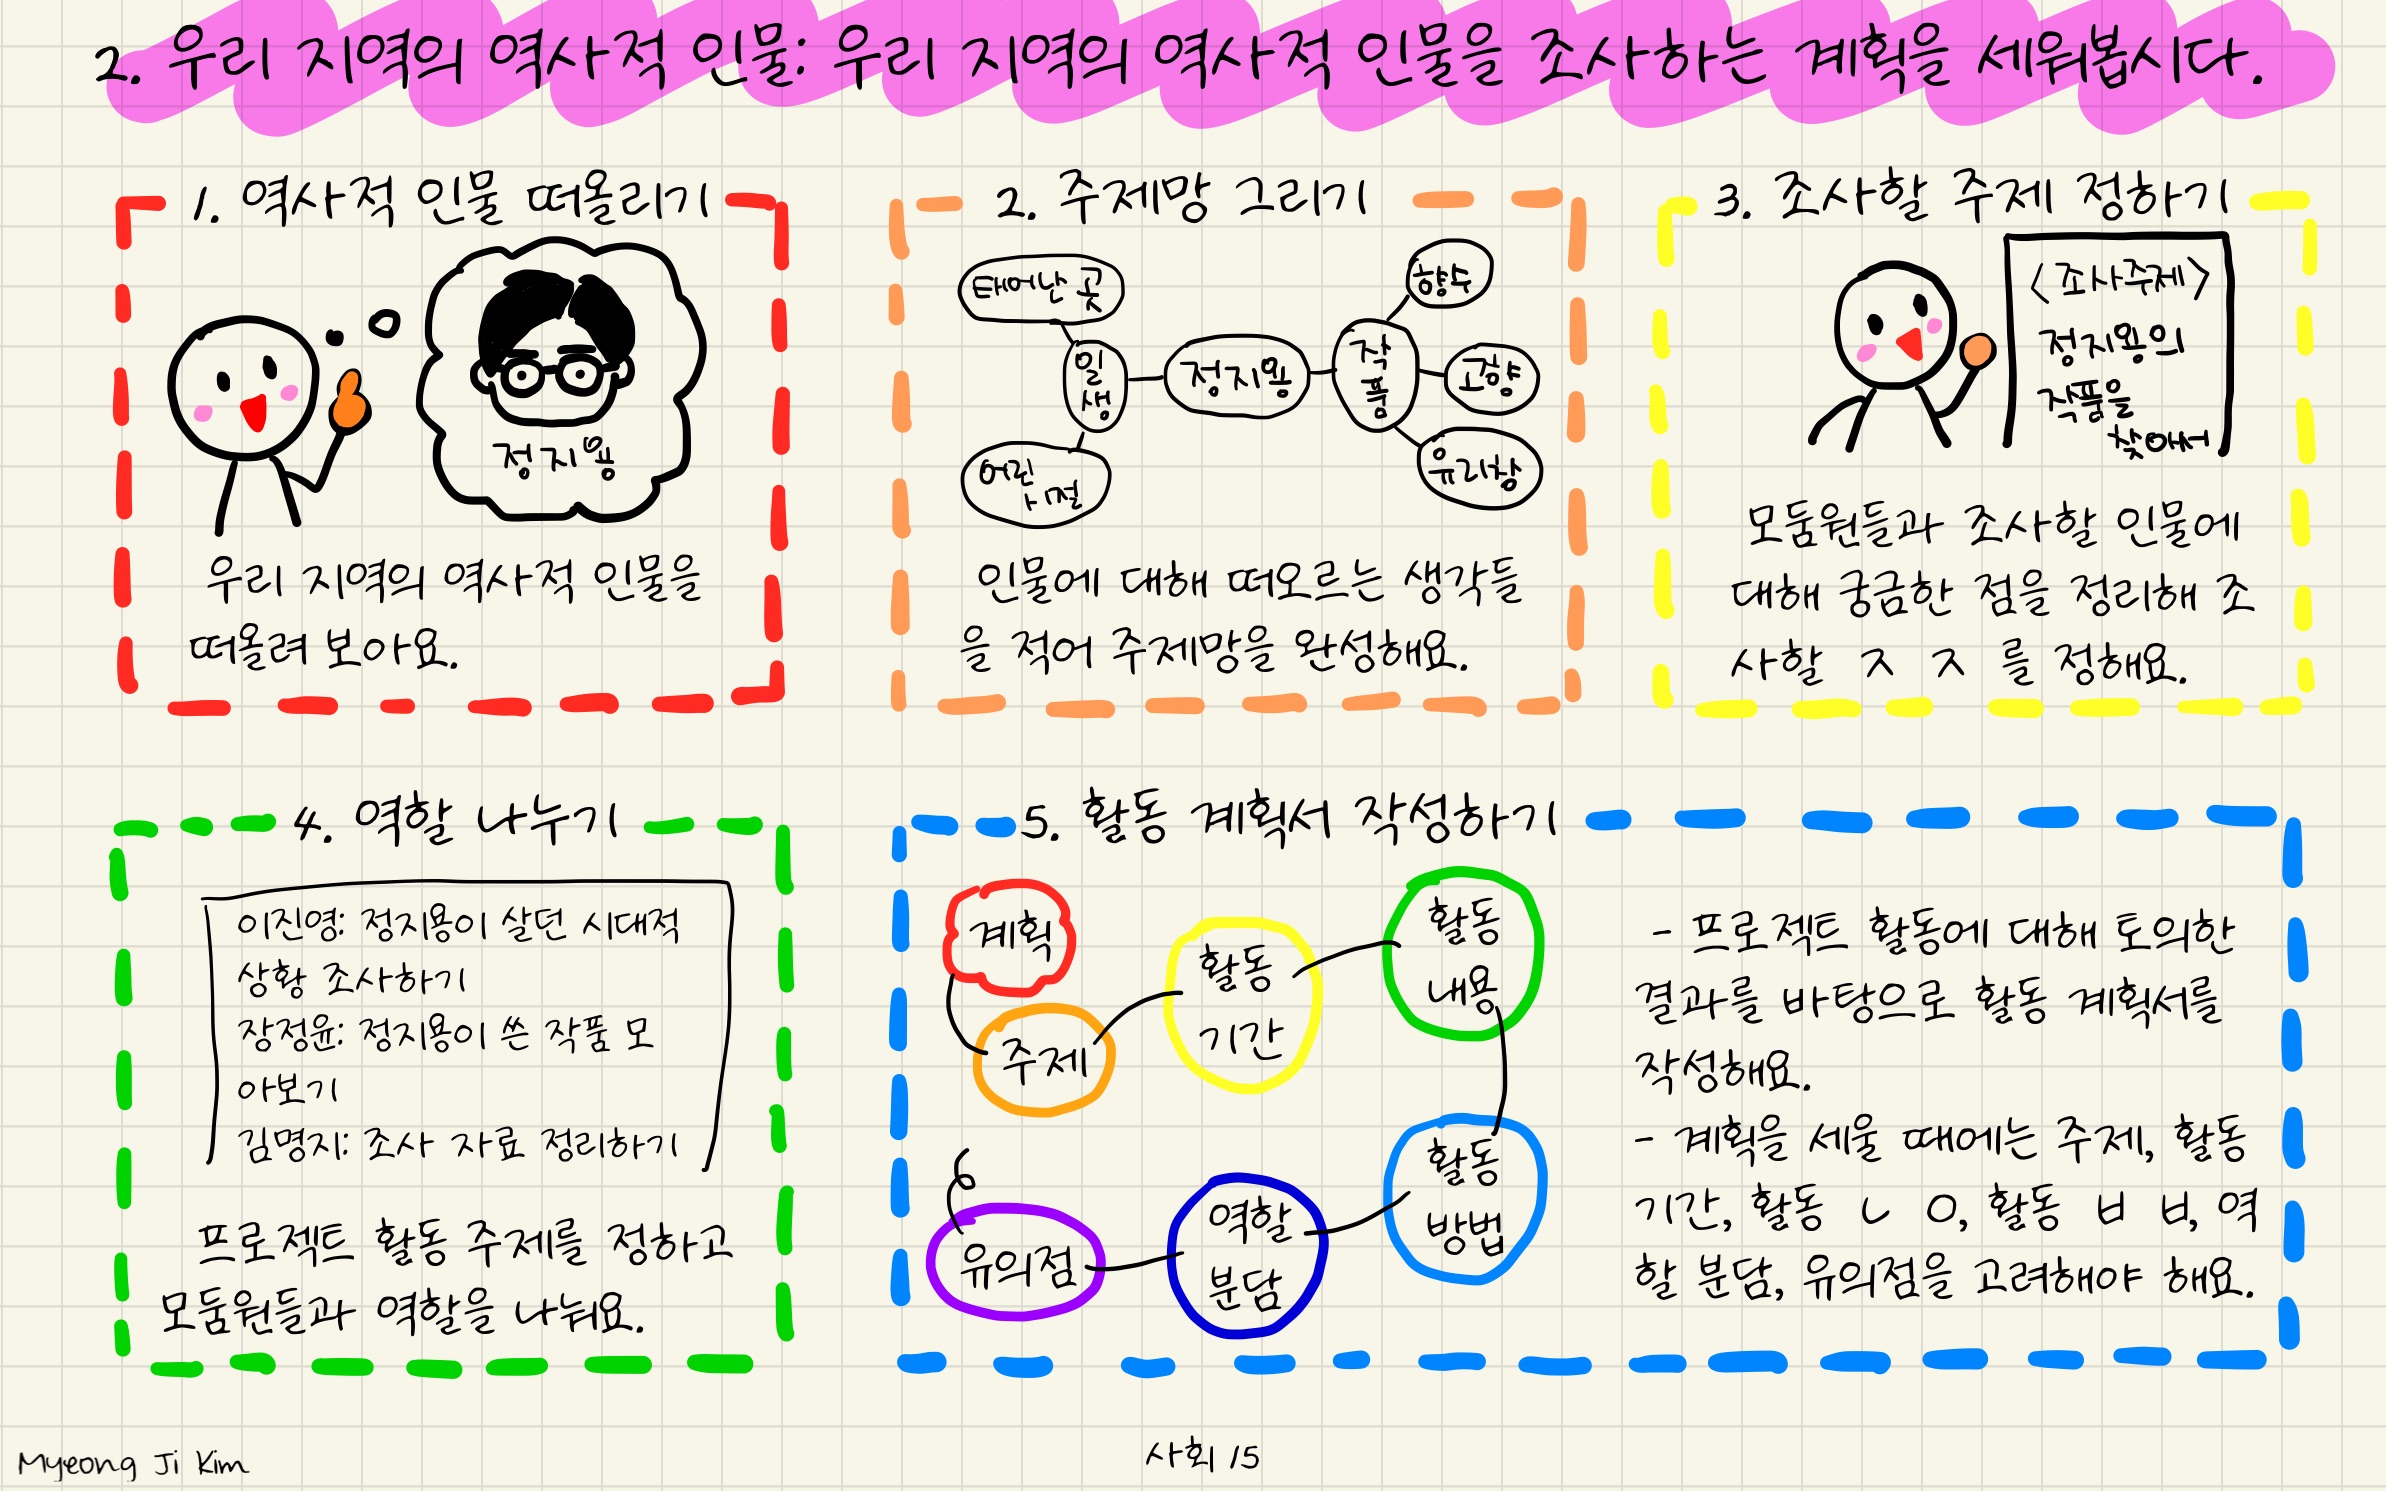 2. 우리 지역의 역사적 인물: 우리 지역의 역사적 인물을 조사하는 계획을 세워봅시다.
1. 역사적 인물 떠올리기
정지용
우리 지역의 역사적 인물을
떠올려 보아요.
2. 주제망 그리기
태어난 곳
일
생
어린
시절
정지용
작
품
향수
고향
유리창
인물에 대해 떠오르는 생각들
을 적어 주제망을 완성해요.
3. 조사할 주제 정하기
<조사주제>
정지용의
작품을
찾아서
모둠원들과 조사할 인물에
대해 궁금한 점을 정리해 조
사할 ㅈ ㅈ 를 정해요.
4. 역할 나누기
이진영: 정지용이 살던 시대적
상황 조사하기
장정윤: 정지용이 쓴 작품 모
아보기
김명지: 조사 자료 정리하기
프로젝트 활동 주제를 정하고
모둠원들과 역할을 나눠요.
5. 활동 계획서 작성하기
계획
주제
활동
기간
활동
내용
활동
방법
역할
분담
유의점
- 프로젝트 활동에 대해 토의한
결과를 바탕으로 활동 계획서를
작성해요.
- 계획을 세울 때에는 주제, 활동
기간, 활동 ㄴ ㅇ, 활동 ㅂ ㅂ, 역
할 분담, 유의점을 고려해야 해요.
Myeong Ji Kim
사회 15